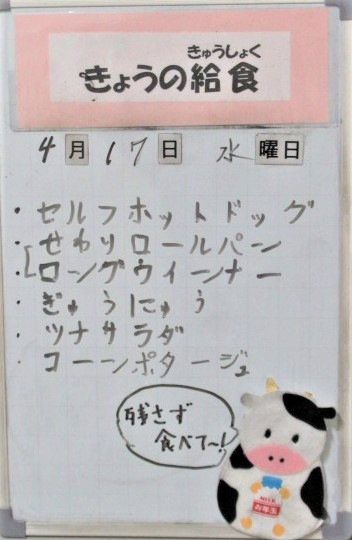 きゅうしょく
きょうの給食
4月17日 水曜日
・セルフホットドッグ
・せわりロールパン
・ロングウィーンナー
・ぎゅうにゅう
・ツナサラダ
・コーンポタージュ
残さず
食べて〜!
MILK
お年玉